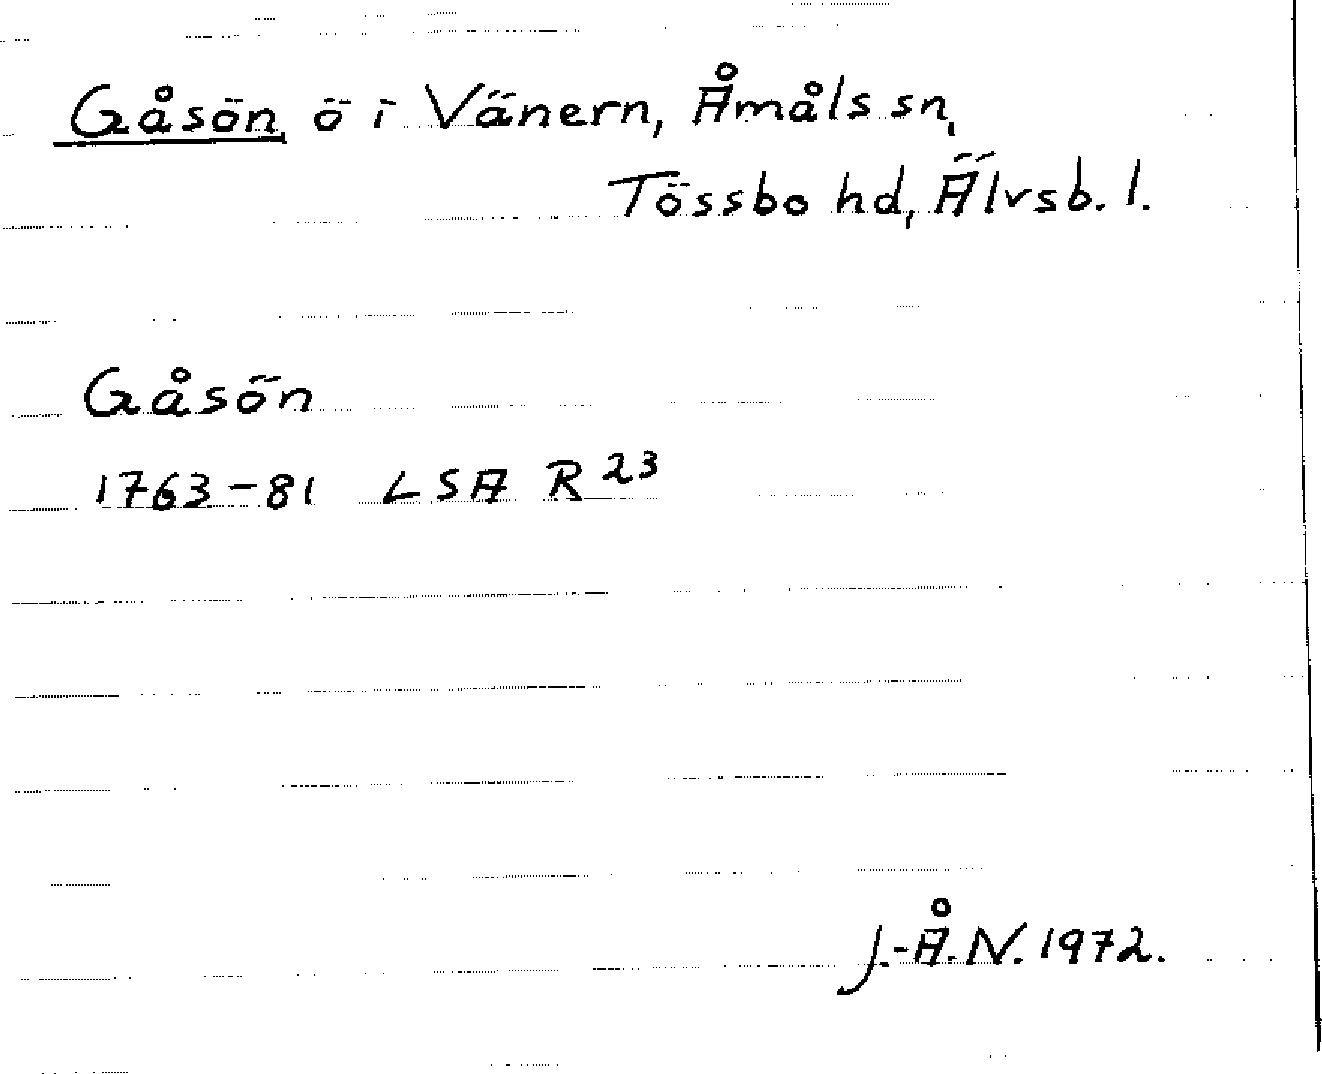 Gåsön ö i Vänern, Åmåls sn,
Tössbo hd, Älvsb. l.
Gåsön
1763-81 LSA R 23
J.-Å. N. 1972.